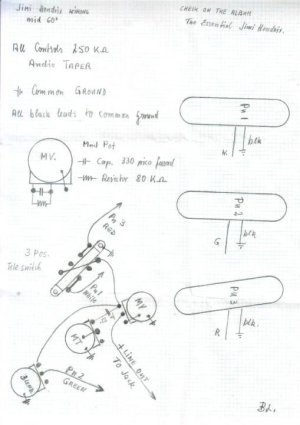 Jimi Hendrix wiring
mid 60'
CHECK ON THE ALBUM
The Essential Jimi Hendrix.
All Controls 250 KΩ
Audio TAPER
Common GROUND
All black leads to common ground
Mod Pot
MV.
Cap. 330 pico farad
Resistor 80 KΩ
PU 1
blk
W.
PU 2
blk.
G
PU 3
blk.
R
3 Pos.
Teleswitch
PU 3
RED
PU 1
White
MV
MT
PU 2
GREEN
+ LINE OUT
TO Jack
B.L.